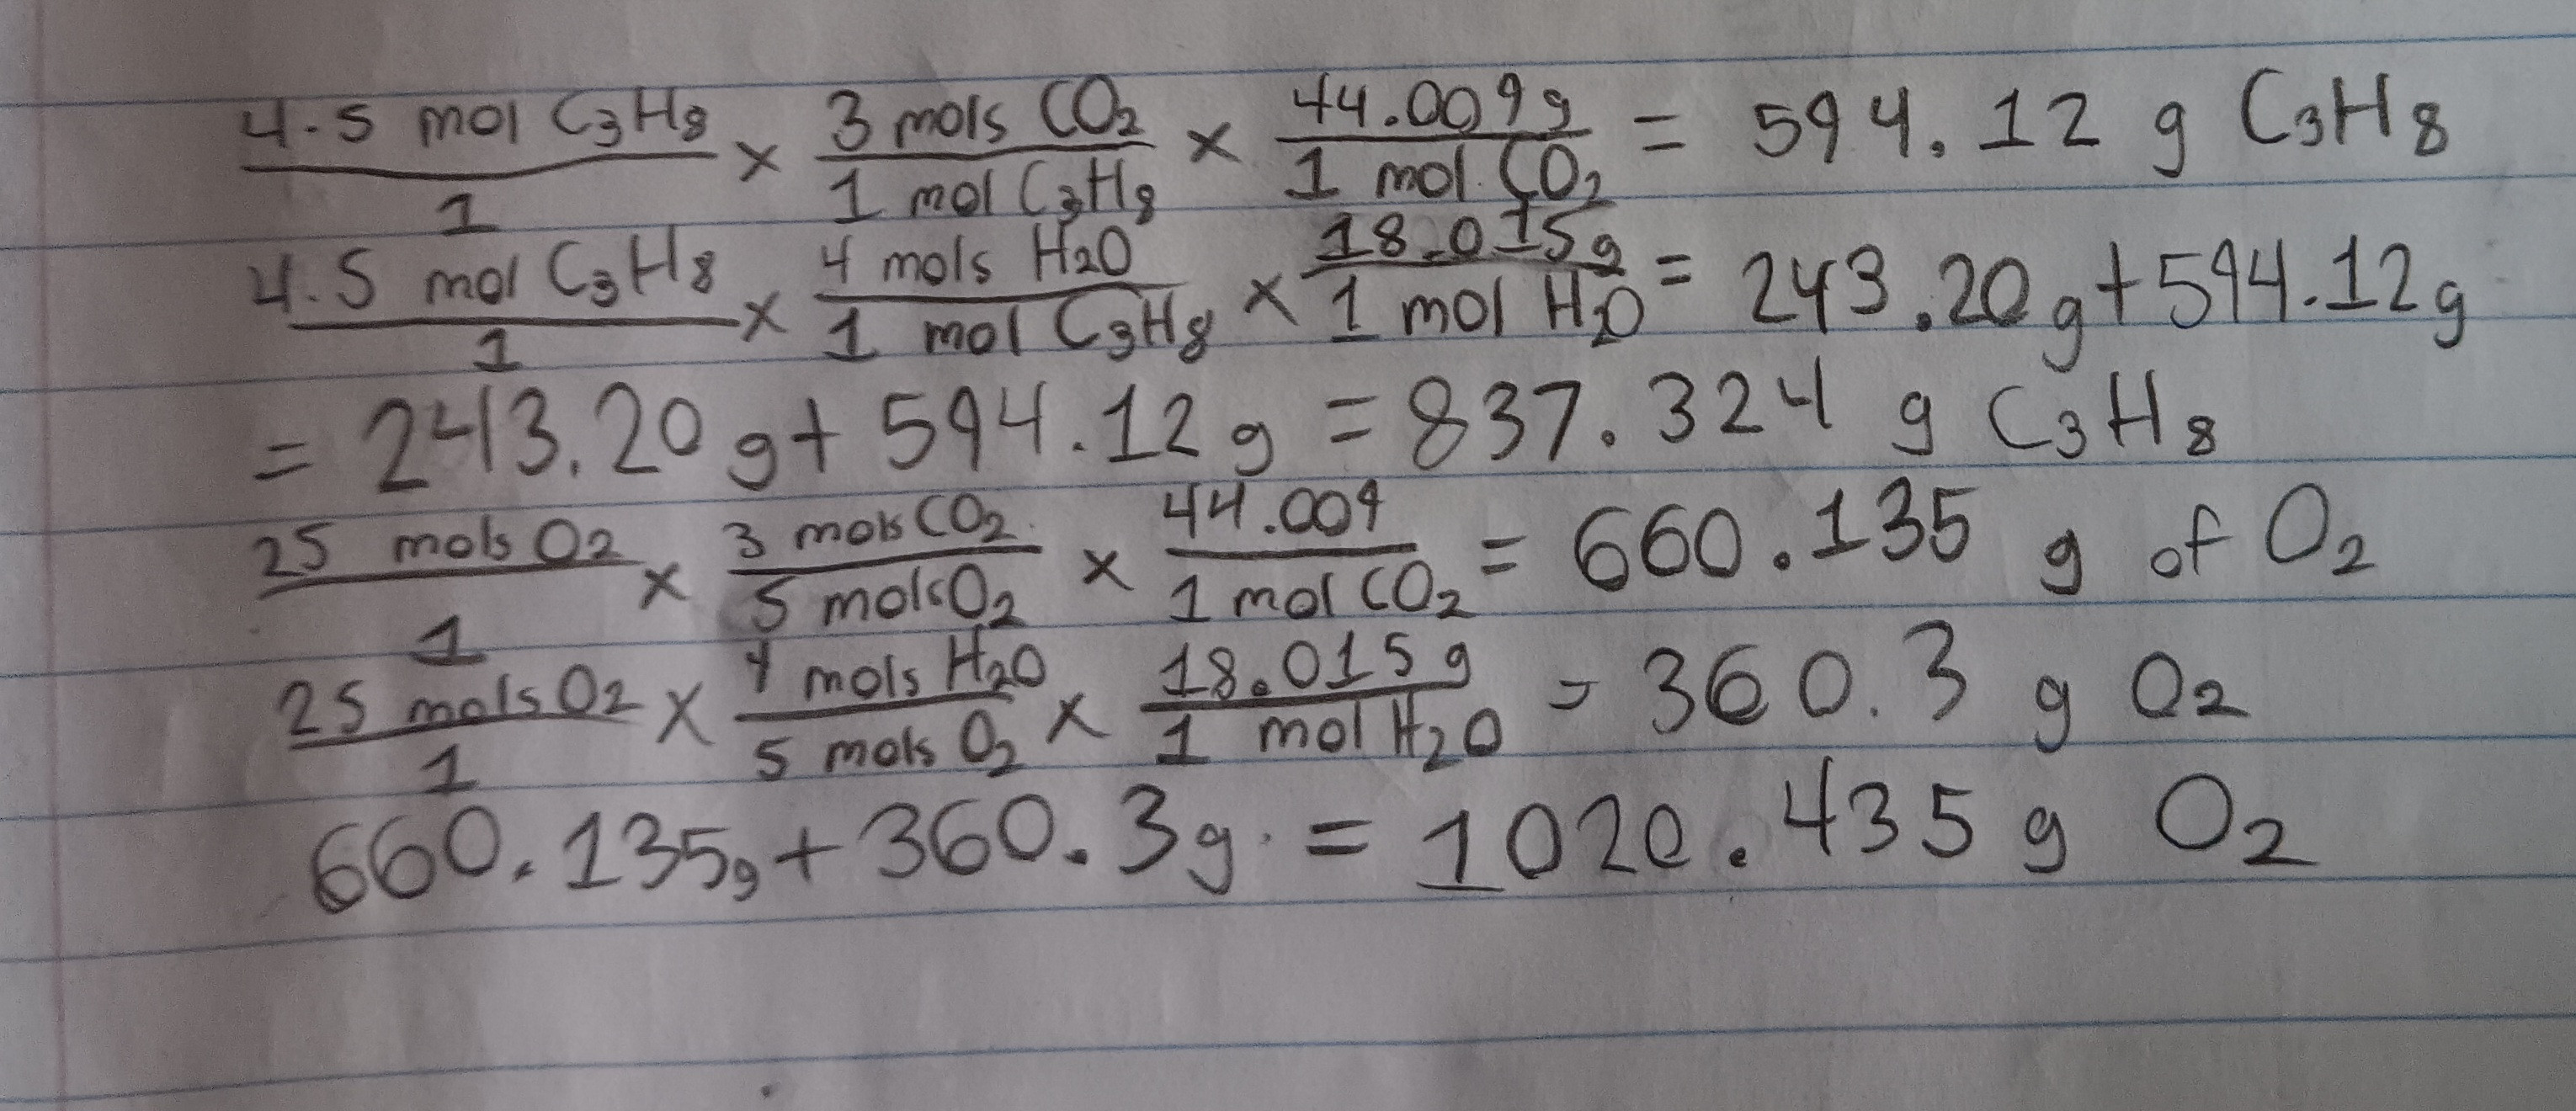 4.5 mol C3H8 / 1 x 3 mols CO2 / 1 mol C3H8 x 44.009g / 1 mol CO2 = 594.12 g C3H8
4.5 mol C3H8 / 1 x 4 mols H2O / 1 mol C3H8 x 18.015g / 1 mol H2O = 243.20g + 594.12g
= 243.20g + 594.12g = 837.324 g C3H8
25 mols O2 / 1 x 3 mols CO2 / 5 mols O2 x 44.009 / 1 mol CO2 = 660.135 g of O2
25 mols O2 / 1 x 4 mols H2O / 5 mols O2 x 18.015g / 1 mol H2O = 360.3 g O2
660.135g + 360.3g = 1020.435 g O2